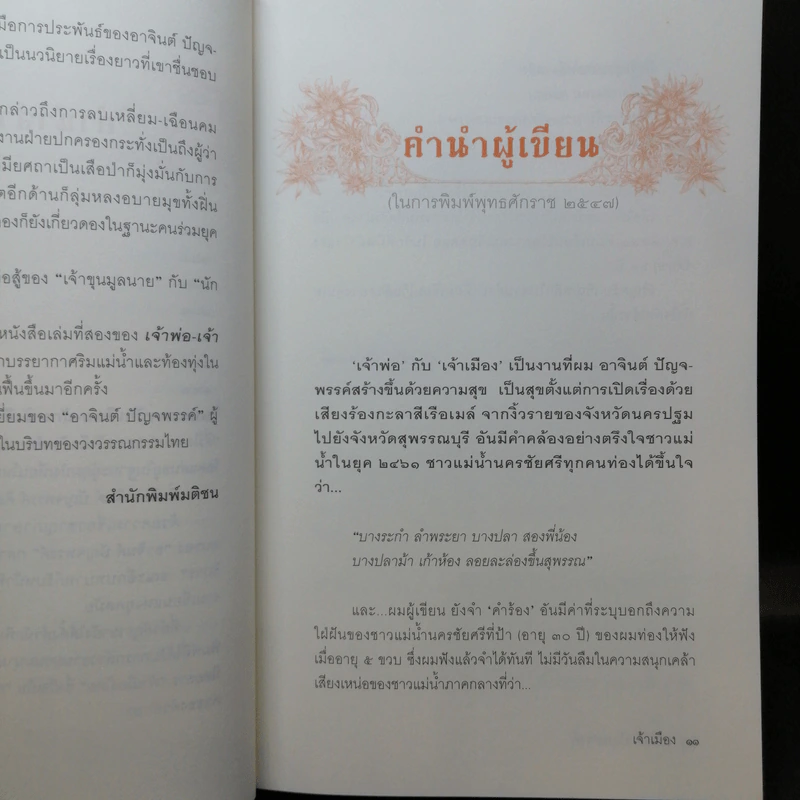 มือการประพันธ์ของอาจินต์ ปัญจ-
เป็นนวนิยายเรื่องยาวที่เขาชื่นชอบ
กล่าวถึงการลบเหลี่ยม-เฉือนคม
งานฝ่ายปกครองกระทั่งเป็นถึงผู้ว่า
มียศถาเป็นเสือป่าก็มุ่งมั่นกับการ
ตอีกด้านก็ลุ่มหลงอบายมุขทั้งฝิ่น
องก็ยังเกี่ยวดองในฐานะคนร่วมยุค
อสู้ของ “เจ้าขุนมูลนาย” กับ “นัก
หนังสือเล่มที่สองของ เจ้าพ่อ-เจ้า
าบรรยากาศริมแม่น้ำและท้องทุ่งใน
ฟื้นขึ้นมาอีกครั้ง
ยี่ยมของ “อาจินต์ ปัญจพรรค์” ผู้
ในบริบทของวงวรรณกรรมไทย
สำนักพิมพ์มติชน
คำนำผู้เขียน
(ในการพิมพ์พุทธศักราช ๒๕๔๗)
‘เจ้าพ่อ’ กับ ‘เจ้าเมือง’ เป็นงานที่ผม อาจินต์ ปัญจ-
พรรค์สร้างขึ้นด้วยความสุข เป็นสุขตั้งแต่การเปิดเรื่องด้วย
เสียงร้องกะลาสีเรือเมล์ จากงิ้วรายของจังหวัดนครปฐม
ไปยังจังหวัดสุพรรณบุรี อันมีคำคล้องอย่างตรึงใจชาวแม่
น้ำในยุค ๒๔๖๑ ชาวแม่น้ำนครชัยศรีทุกคนท่องได้ขึ้นใจ
ว่า...
“บางระกำ ลำพระยา บางปลา สองพี่น้อง
บางปลาม้า เก้าห้อง ลอยละล่องขึ้นสุพรรณ”
และ...ผมผู้เขียน ยังจำ ‘คำร้อง’ อันมีค่าที่ระบุบอกถึงความ
ใฝ่ฝันของชาวแม่น้ำนครชัยศรีที่ป้า (อายุ ๓๐ ปี) ของผมท่องให้ฟัง
เมื่ออายุ ๕ ขวบ ซึ่งผมฟังแล้วจำได้ทันที ไม่มีวันลืมในความสนุกเคล้า
เสียงเหน่อของชาวแม่น้ำภาคกลางที่ว่า...
เจ้าเมือง ๑๑